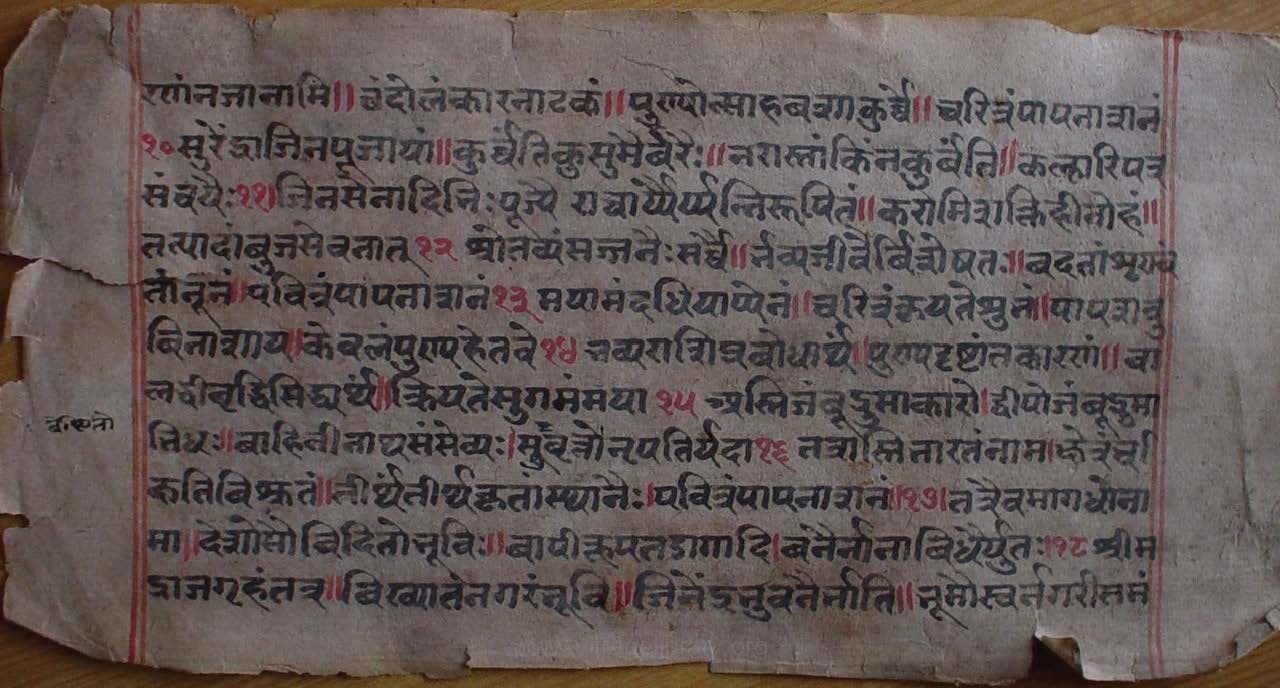 रणंनजानामि॥ छंदोलंकारनाटकं॥ पुण्योत्साहबशाकुर्व्वे॥ चरित्रंपापनाशनं
१०सुरेंद्राजिनपूजायां॥कुर्व्वंतिकुसुमैर्वरैः॥नरास्तांकिंनकुर्वंति॥कल्हारिपत्र
संचयैः११।जिनसेनादिभिःपूज्यै राचार्य्यैर्य्यन्निरूपितं॥करोमिशक्तिहीनोहं॥
तत्पादांबुजसेवनात्१२ श्रोतव्यंसज्जनैःसर्व्वै॥र्भव्यजीवैर्विशेषतः॥वदतांशृण्वं
तांनूनं॥पवित्रंपापनाशनं१३मयामंदधियाप्येनं॥चरित्रंकथ्यतेश्रुतं॥पापशत्रु
विनाशाय॥केवलंपुण्यहेतवे१४भव्यराशिप्रबोधार्थं॥पुण्यदृष्टांतकारणं॥बा
लधीवृद्धिसिद्ध्यर्थं॥क्रियतेसुगमंमया १५ अस्तिजंबूद्रुमाकारो।द्वीपोजंबूद्रुमा
न्वितः॥वाहिनीनाथसंसेव्यः।सुवृत्तोनृपतिर्यदा१६तत्रास्तिभारतंनाम।क्षेत्रं
कृतिविश्रुतं॥तीर्थंतीर्थकृतांस्थानैः।पवित्रंपापनाशनं॥१७।तत्रैवमागधोना
मा॥देशोसौविदितोभूवि॥वापीकूपतडागादि।वनैर्नानाविधैर्युतः१८श्रीम
द्राजगृहंतत्र॥विख्यातंनगरंभूवि॥जिनेंद्रभुवनैर्भाति॥भूमौस्वर्नगरीसमं